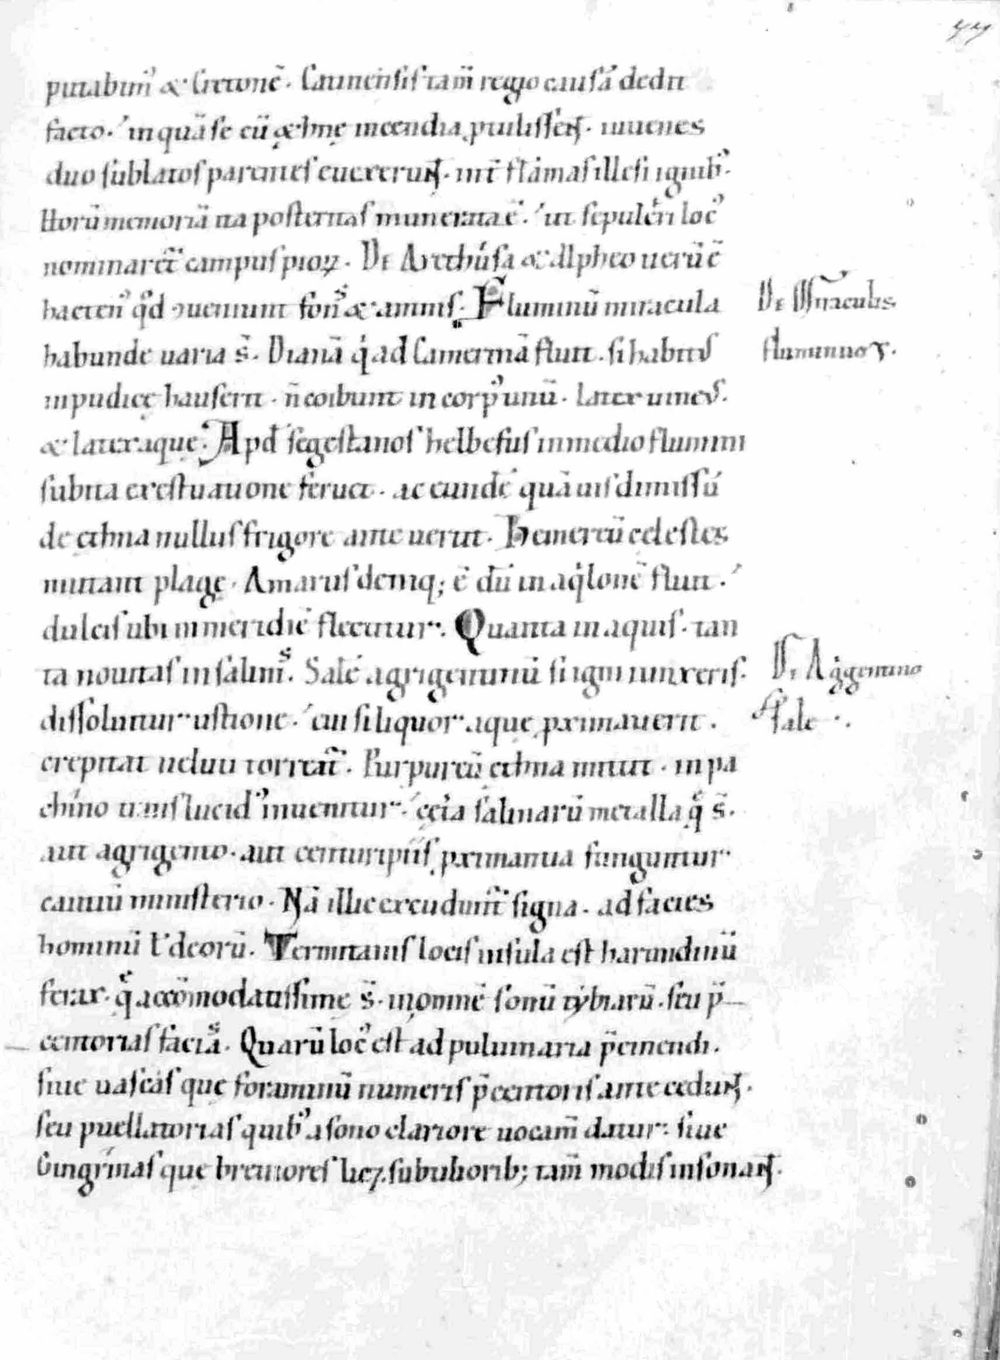 putabim᷒ & Critonē. Catinensis tam̄ regio causā dedit
facto. in quā se cū ęthnę incendia ꝓtulissent. iuuenes
duo sublatos parentes euexerunt. int̄ flāmas illesi ignib᷒.
Horū memoriā ita posteritas munerata ē. ut sepulcri loc᷒
nominaret᷑ campus pioꝝ. De Arethusa & Alpheo uerū ē
hacten᷒ qđ ꝯueniunt fons & amnis. Fluminū miracula
habunde uaria s̄. Dianā q ad Camerinā fluit. si habitus
inpudice hauserit. n̄ coibunt in corp᷒ unū. latex uineus.
& latex aquę. Apđ segestanos helbesus in medio flumini
subita exestuatione feruet. ac eundē quāuis dimissū
de ethna nullus frigore anteuertit. Hemereū celestes
mutant plagę. Amarus deniq; ē dū in aqͥlonē fluit.
dulcis ubi in meridiē flectitur. Quanta in aquis. tan
ta nouitas in salinis. Salē agrigentinū si igni iunxeris.
dissoluitur ustione. cui si liquor aquę ꝓximauerit.
crepitat ueluti torreat᷑. Purpureū ethna mittit. in pa
chino translucid᷒ inuenitur. cętͣa salinarū metalla quę s̄.
aut agrigento. aut centuripiis ꝓximantia funguntur
cautiū ministerio. Nā illic excudunt᷑ signa. ad facies
hominū ł deorū. Termitanis locis insula est harundinū
ferax. quę accōmodatissime s̄. in omnē sonū tybiarū. seu p̄
centorias facias. Quarū loc᷒ est ad puluinaria p̄cinendi.
siue uascas que foraminū numeris p̄centoris antecedunt.
seu puellatorias quib᷒ a sono clariore uocam̄ datur. siue
Gingrinas que breuiores licet subtiliorib; tam̄ modis insonant.
De Miraculis
fluminuoꝝ.
De Aggentino
sale.